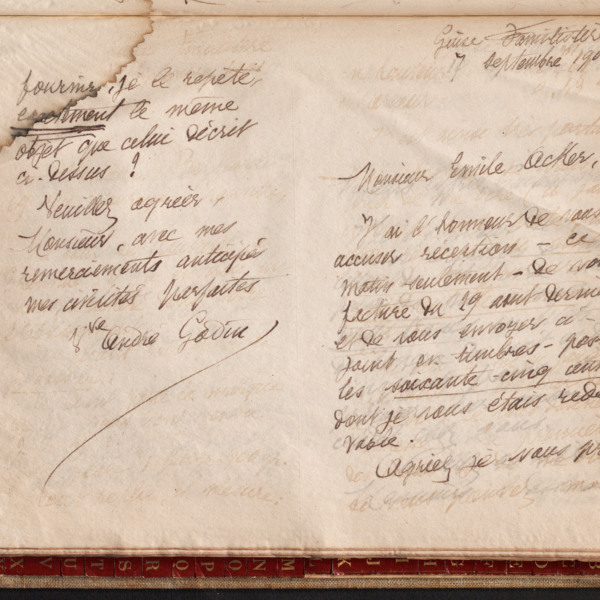 fournir, je le repète,
exactement le même
objet que celui décrit
ci-dessus ?
Veuillez agréer,
Monsieur, avec mes
remerciements anticipés
mes civilités parfaites
Vve André Godin
Guise Familistère
7 septembre 190
Monsieur Emile Acker,
J'ai l'honneur de vous
accuser réception - ce
matin seulement - de vo
facture du 19 aout dernie
et de vous envoyer ci-
joint en timbres-pos
les soixante-cinq cen
dont je vous étais rede
vable.
Agréez, je vous pr
M N O P Q R S T U V X